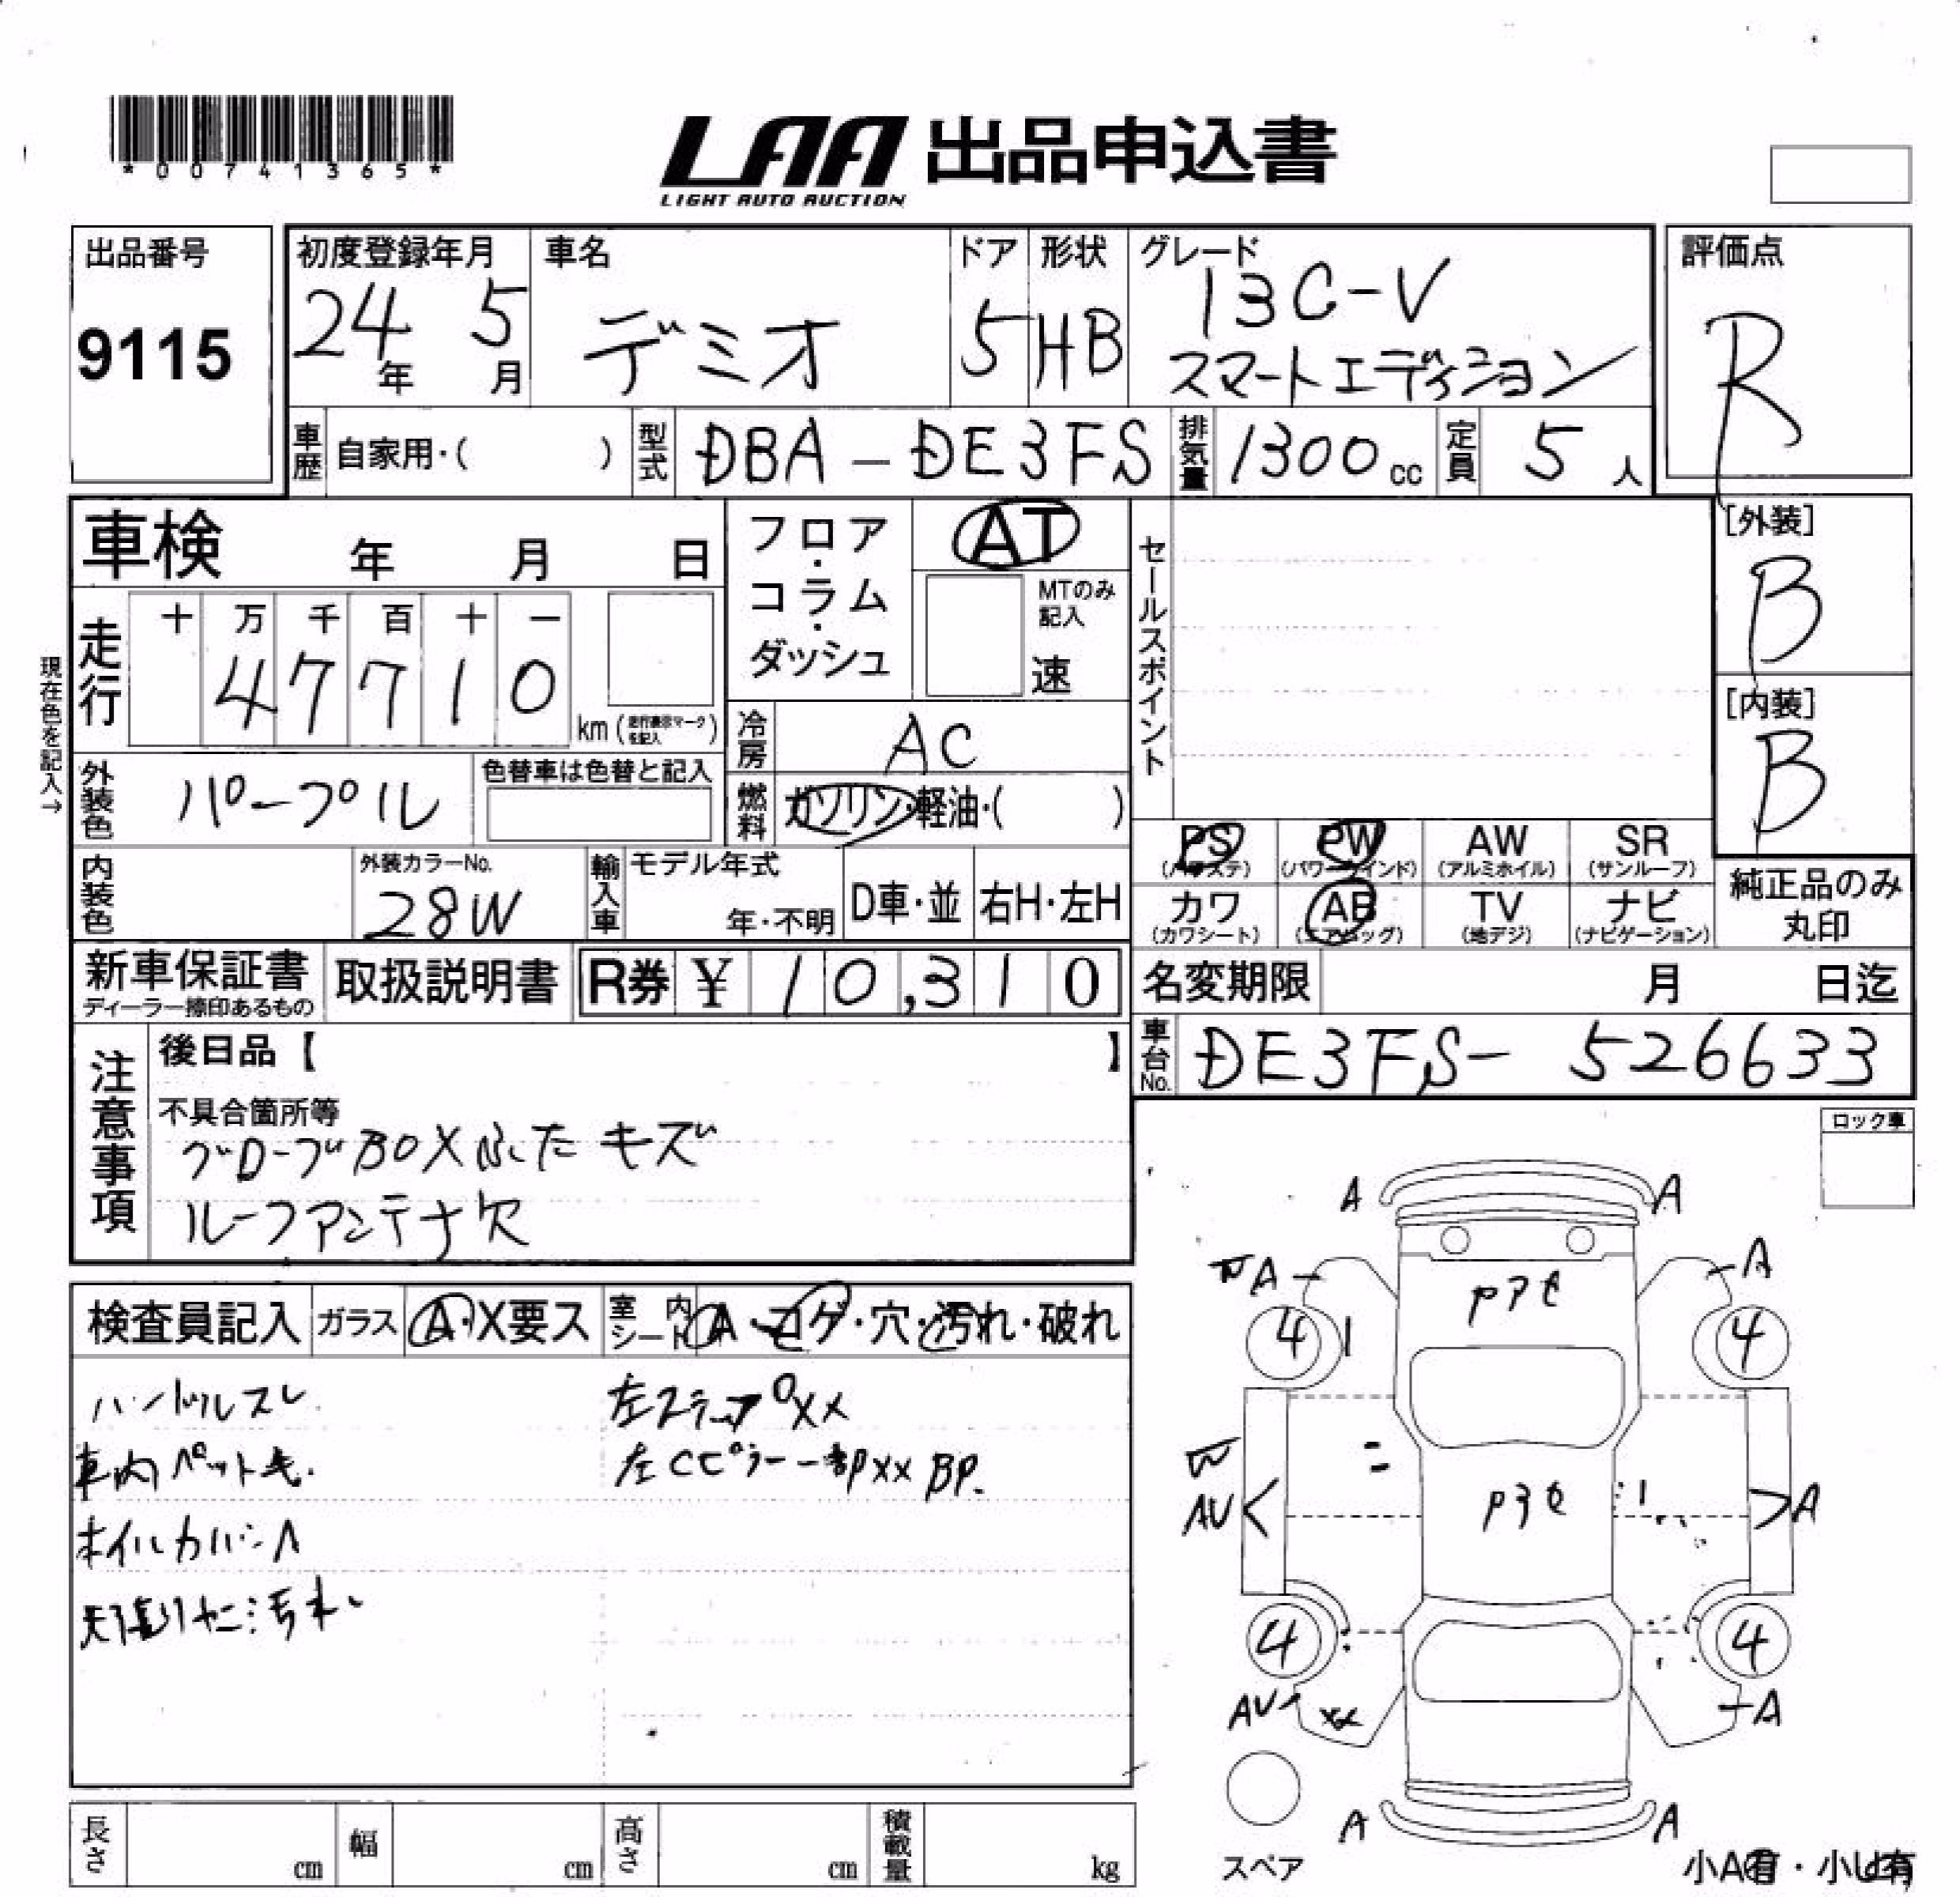 *00741365*
LAA 出品申込書
LIGHT AUTO AUCTION
出品番号
9115
初度登録年月
24年 5月
車名
デミオ
ドア
5
形状
HB
グレード
13C-V
スマートエディション
評価点
R
車歴 自家用・( )
型式 DBA-DE3FS
排気量 1300cc
定員 5人
車検 年 月 日
フロア・コラム・ダッシュ
AT
MTのみ記入
速
セールスポイント
[外装]
B
[内装]
B
現在色を記入→
走行
十 万 千 百 十 一
4 7 7 1 0
km (走行表示マークを記入)
冷房 AC
外装色 パープル
色替車は色替と記入
燃料 ガソリン・軽油・( )
内装色
外装カラーNo.
28W
輸入車
モデル年式
年・不明
D車・並
右H・左H
PS
(パワステ)
PW
(パワーウインド)
AW
(アルミホイル)
SR
(サンルーフ)
カワ
(カワシート)
AB
(エアバッグ)
TV
(地デジ)
ナビ
(ナビゲーション)
純正品のみ
丸印
新車保証書
ディーラー捺印あるもの
取扱説明書
R券 ¥ 10,310
名変期限 月 日迄
車台No. DE3FS-526633
注意事項
後日品【 】
不具合箇所等
グローブBOXふたキズ
ルーフアンテナ欠
ロック車
検査員記入
ガラス
A・X要ス
室内シート
A・コゲ・穴・汚れ・破れ
ハンドルスレ
車内ペット毛.
ホイルカバーA
天張りヤニ汚れ
左ステップXX
左Cピラー一部PXX BP.
A A
A A
4 4
AV A
4 4
AV XX A
A A
スペア
小A有・小U有
長さ cm
幅 cm
高さ cm
積載量 kg